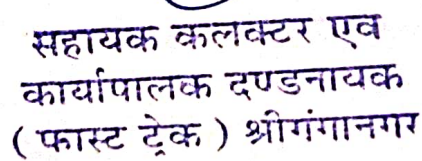 सहायक कलक्टर एव
कार्यापालक दण्डनायक
( फास्ट ट्रेक ) श्रीगंगानगर